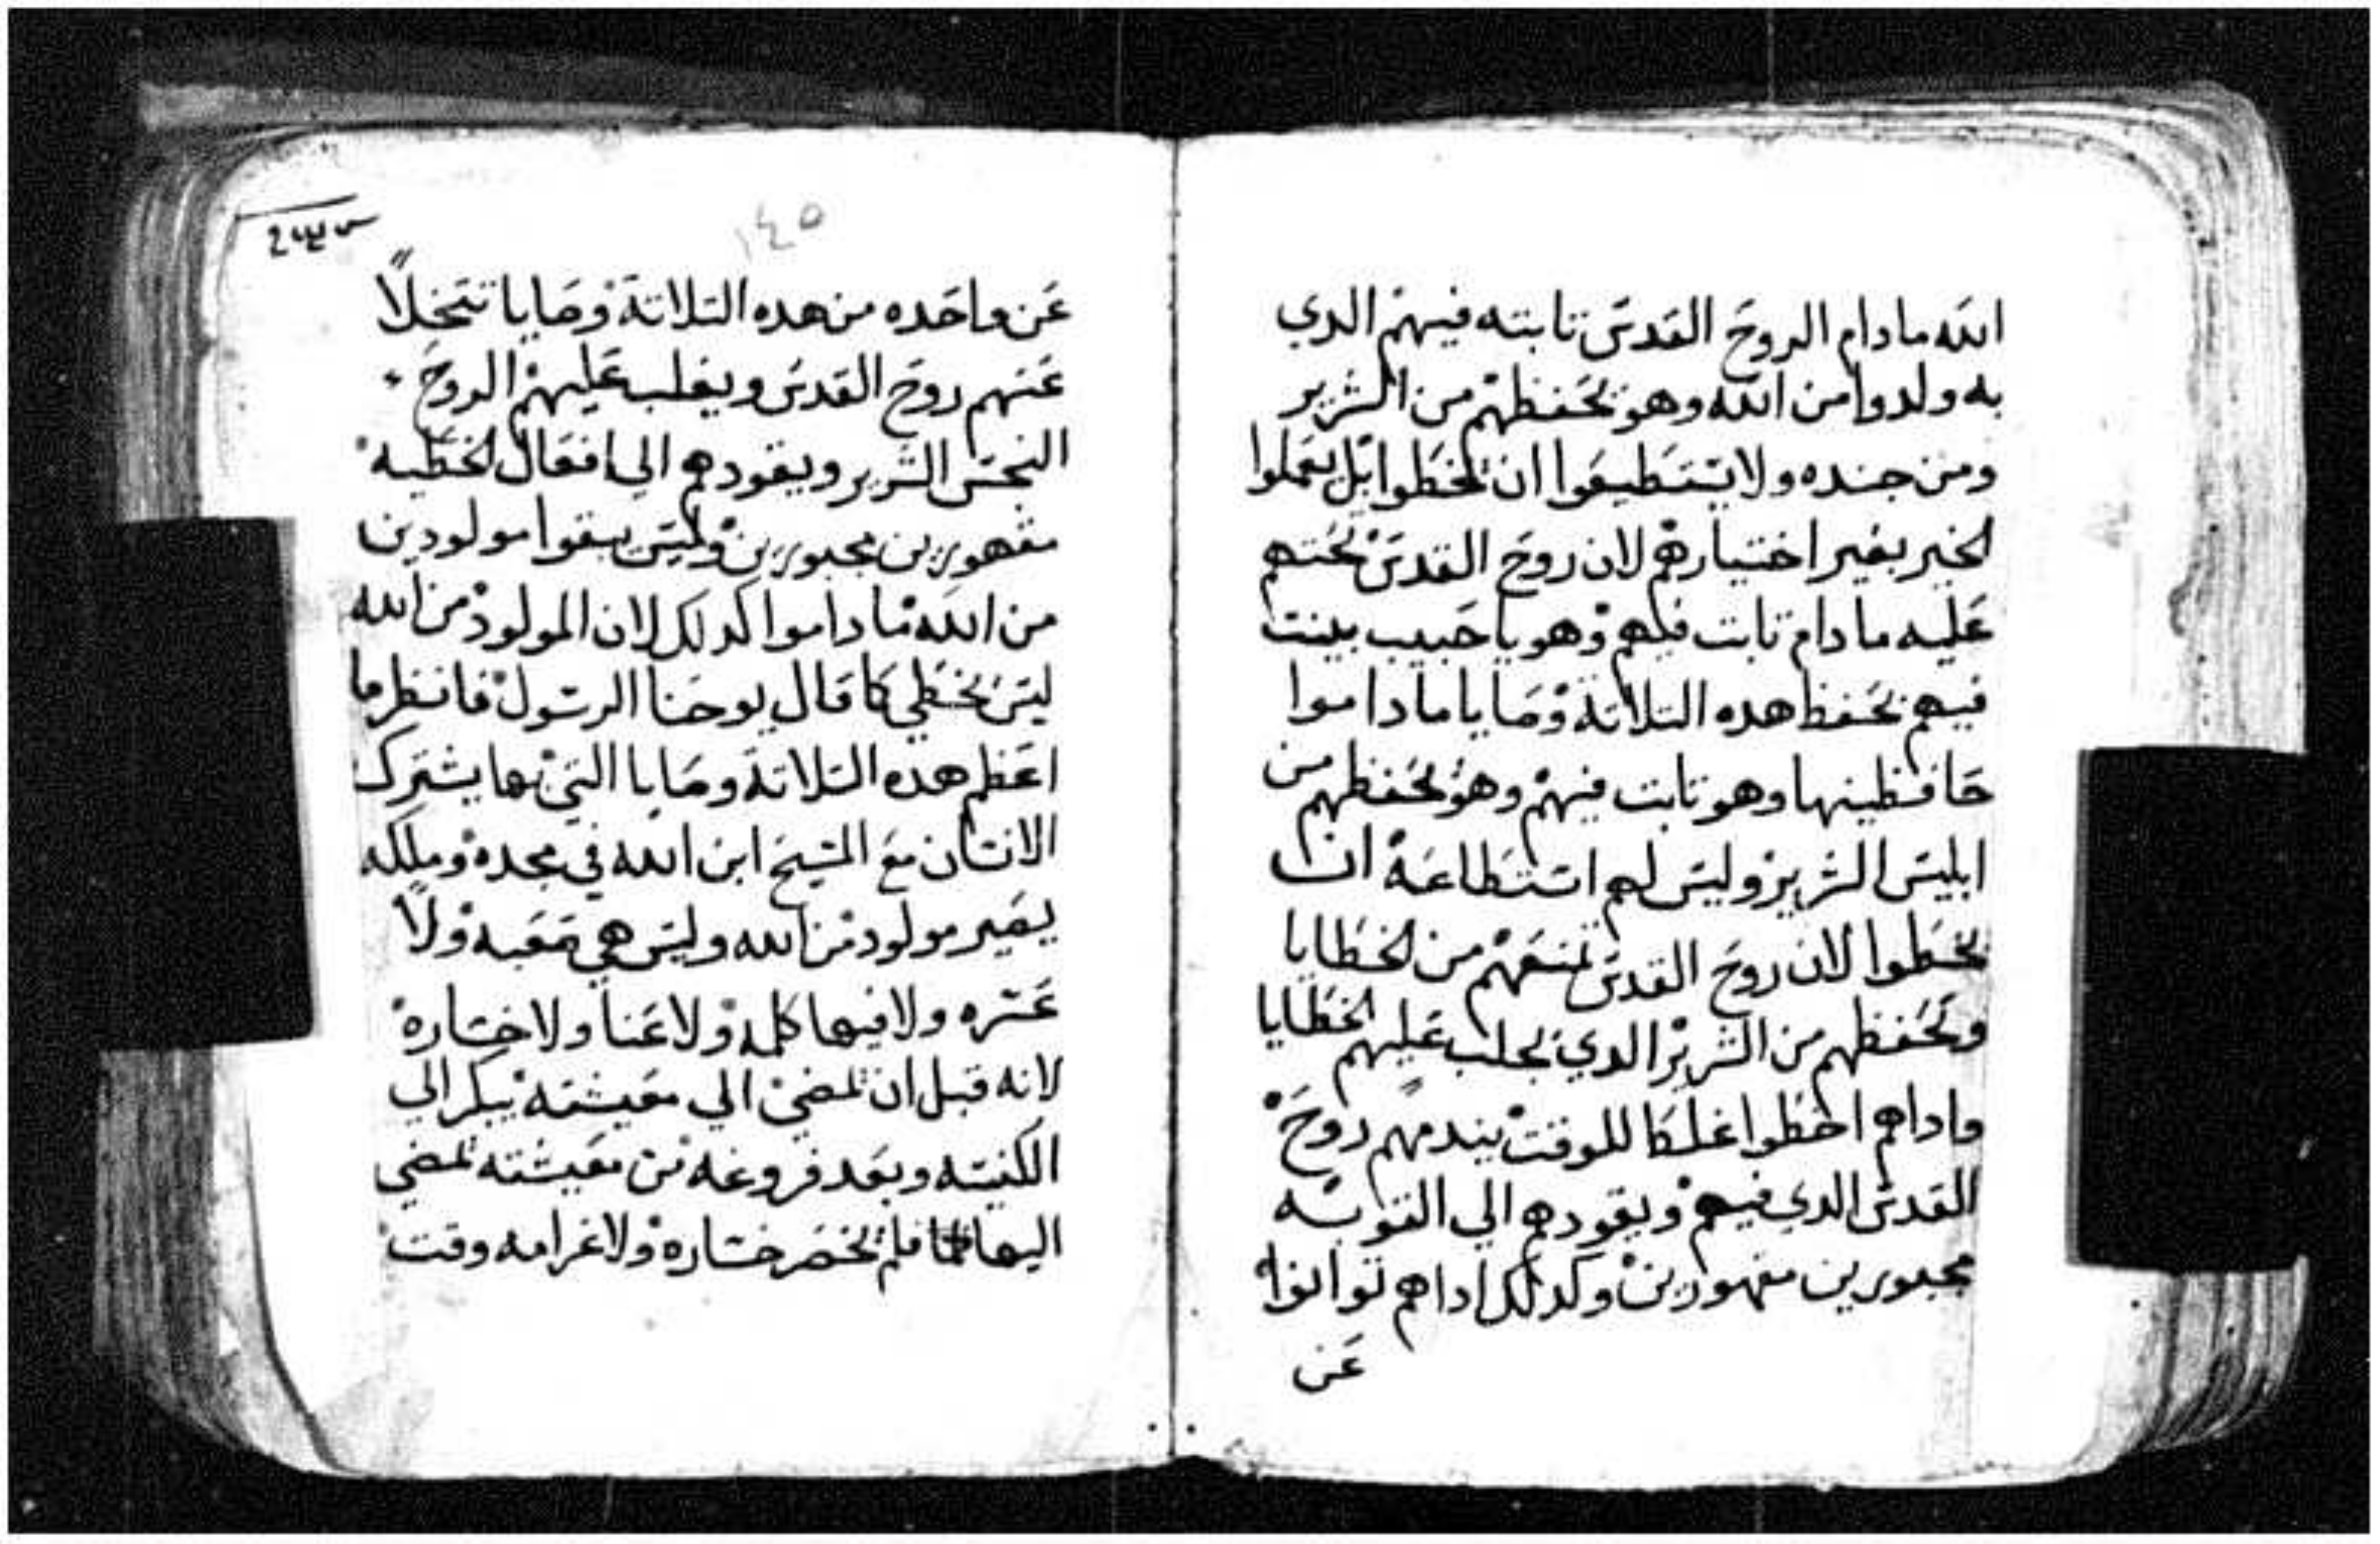 الله مادام الروح القدس تابته فيهم الدي
به ولدوا من الله وهو يحفظهم من الشرير
ومن جنده ولا يستطيعوا ان يخطوا بل يعملوا
الخير بغير اختيارهم لان روح القدس يحتهم
عليه ما دام تابت فيهم وهو يا حبيب يتبت
فيهم بحفظ هده التلاتة وصايا ما داموا
حافظينها وهو تابت فيهم وهو يحفظهم من
ابليس الشرير وليس لهم استطاعة ان
يخطوا لان روح القدس يمنعهم من الخطايا
ويحفظهم من الشرير الدي يجلب عليهم الخطايا
واداهم اخطوا غلطا للوقت يندمهم روح
القدس الدي فيهم ويقودهم الي التوبه
مجبورين مقهورين وكدلك اداهم توانوا
عن
١٤٥
عن واحده من هده التلاتة وصايا تتخلا
عنهم روح القدس ويغلب عليهم الروح
النجس الشرير ويقودهم الي افعال الخطيه
مقهورين مجبورين وليس يبقوا مولودين
من الله ما داموا كدلك لان المولود من الله
ليس يخطي كما قال يوحنا الرسول فانظر ما
اعظم هده التلاتة وصايا التي بها يشترك
الانسان مع المسيح ابن الله في مجده وملكه
يصير مولود من الله وليس هي صعبه ولا
عسره ولا فيها كلمه ولا عنا ولا خساره
لانه قبل ان يمضي الي معيشته يبكر الي
الكنيسه وبعد فروغه من معيشته يمضي
اليها فلم يخسر خساره ولا غرامه وقت